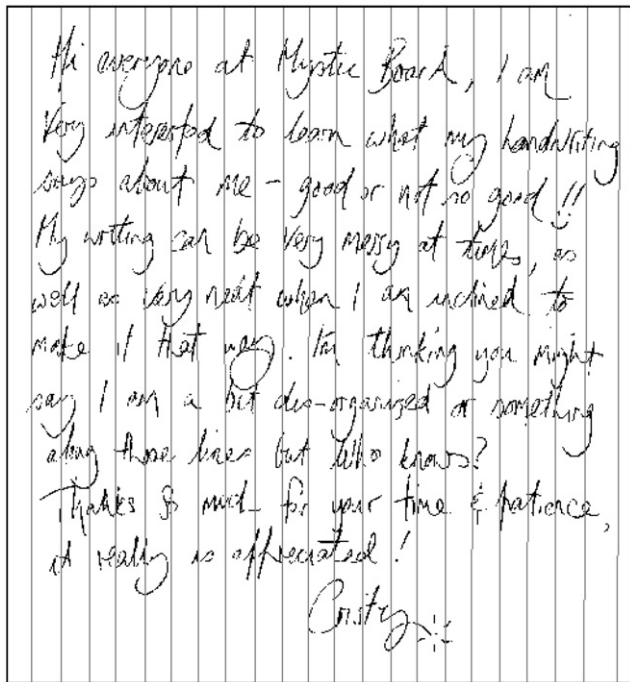 Hi everyone at Mystic Board, I am
very interested to learn what my handwriting
says about me - good or not so good!!
My writing can be very messy at times, as
well as very neat when I am inclined to
make it that way. I'm thinking you might
say I am a bit dis-organized or something
along those lines but who knows?
Thanks so much for your time & patience,
it really is appreciated!
Cristy